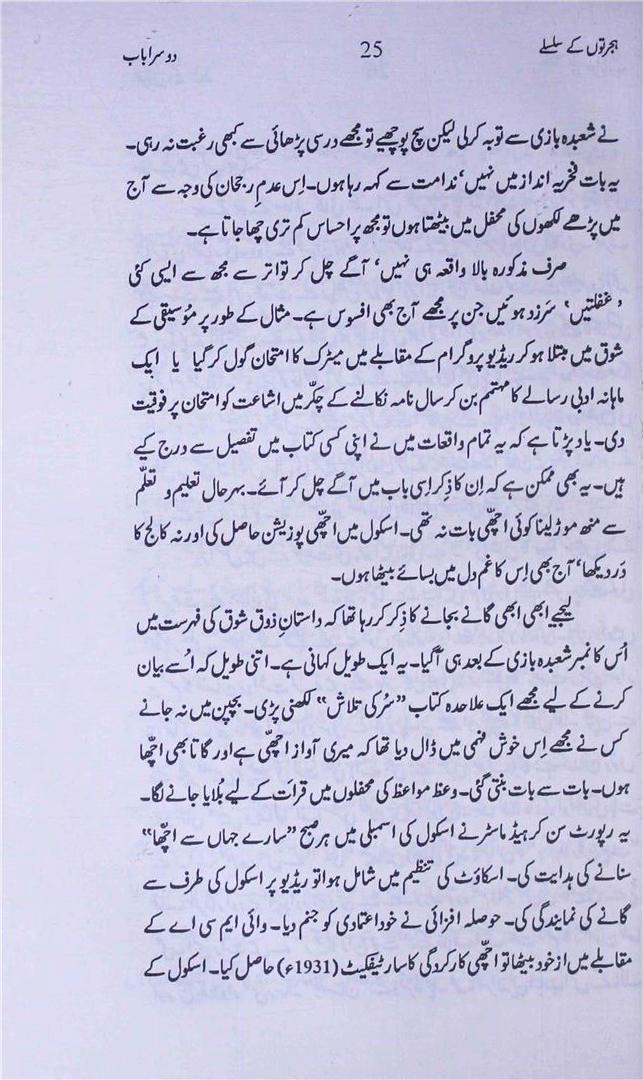 ہجرتوں کے سلسلے 25 دوسرا باب
نے شعبدہ بازی سے توبہ کرلی لیکن سچ پوچھیے تو مجھے درسی پڑھائی سے کبھی رغبت نہ رہی۔
یہ بات فخریہ انداز میں نہیں، ندامت سے کہہ رہا ہوں۔ اِس عدمِ رجحان کی وجہ سے آج
میں پڑھے لکھوں کی محفل میں بیٹھتا ہوں تو مجھ پر احساس کم تری چھا جاتا ہے۔
صرف مذکورہ بالا واقعہ ہی نہیں، آگے چل کر تواتر سے مجھ سے ایسی کئی
’غفلتیں‘ سَرزد ہوئیں جن پر مجھے آج بھی افسوس ہے۔ مثال کے طور پر مُوسیقی کے
شوق میں مبتلا ہو کر ریڈیو پروگرام کے مقابلے میں میٹرک کا امتحان گول کر گیا یا ایک
ماہانہ ادبی رسالے کا مہتمم بن کر سال نامہ نکالنے کے چکّر میں اشاعت کو امتحان پر فوقیت
دی۔ یاد پڑتا ہے کہ یہ تمام واقعات میں نے اپنی کسی کتاب میں تفصیل سے درج کیے
ہیں۔ یہ بھی ممکن ہے کہ اِن کا ذِکر اِسی باب میں آگے چل کر آئے۔ بہرحال تعلیم و تعلّم
سے منھ موڑ لینا کوئی اچھّی بات نہ تھی۔ اسکول میں اچھّی پوزیشن حاصل کی اور نہ کالج کا
دَر دیکھا، آج بھی اِس کا غم دل میں بسائے بیٹھا ہوں۔
لیجیے ابھی ابھی گانے بجانے کا ذِکر کر رہا تھا کہ داستانِ ذوق شوق کی فہرست میں
اُس کا نمبر شعبدہ بازی کے بعد ہی آگیا۔ یہ ایک طویل کہانی ہے۔ اتنی طویل کہ اُسے بیان
کرنے کے لیے مجھے ایک علاحدہ کتاب ”سُر کی تلاش“ لکھنی پڑی۔ بچپن میں نہ جانے
کس نے مجھے اِس خوش فہمی میں ڈال دیا تھا کہ میری آواز اچھّی ہے اور گاتا بھی اچھّا
ہوں۔ بات سے بات بنتی گئی۔ وعظ مواعظ کی محفلوں میں قرأت کے لیے بلایا جانے لگا۔
یہ رپورٹ سن کر ہیڈ ماسٹر نے اسکول کی اسمبلی میں ہر صبح ”سارے جہاں سے اچھّا“
سنانے کی ہدایت کی۔ اسکاؤٹ کی تنظیم میں شامل ہوا تو ریڈیو پر اسکول کی طرف سے
گانے کی نمایندگی کی۔ حوصلہ افزائی نے خود اعتمادی کو جنم دیا۔ وائی ایم سی اے کے
مقابلے میں ازخود بیٹھا تو اچھّی کارکردگی کا سارٹیفکیٹ (1931ء) حاصل کیا۔ اسکول کے